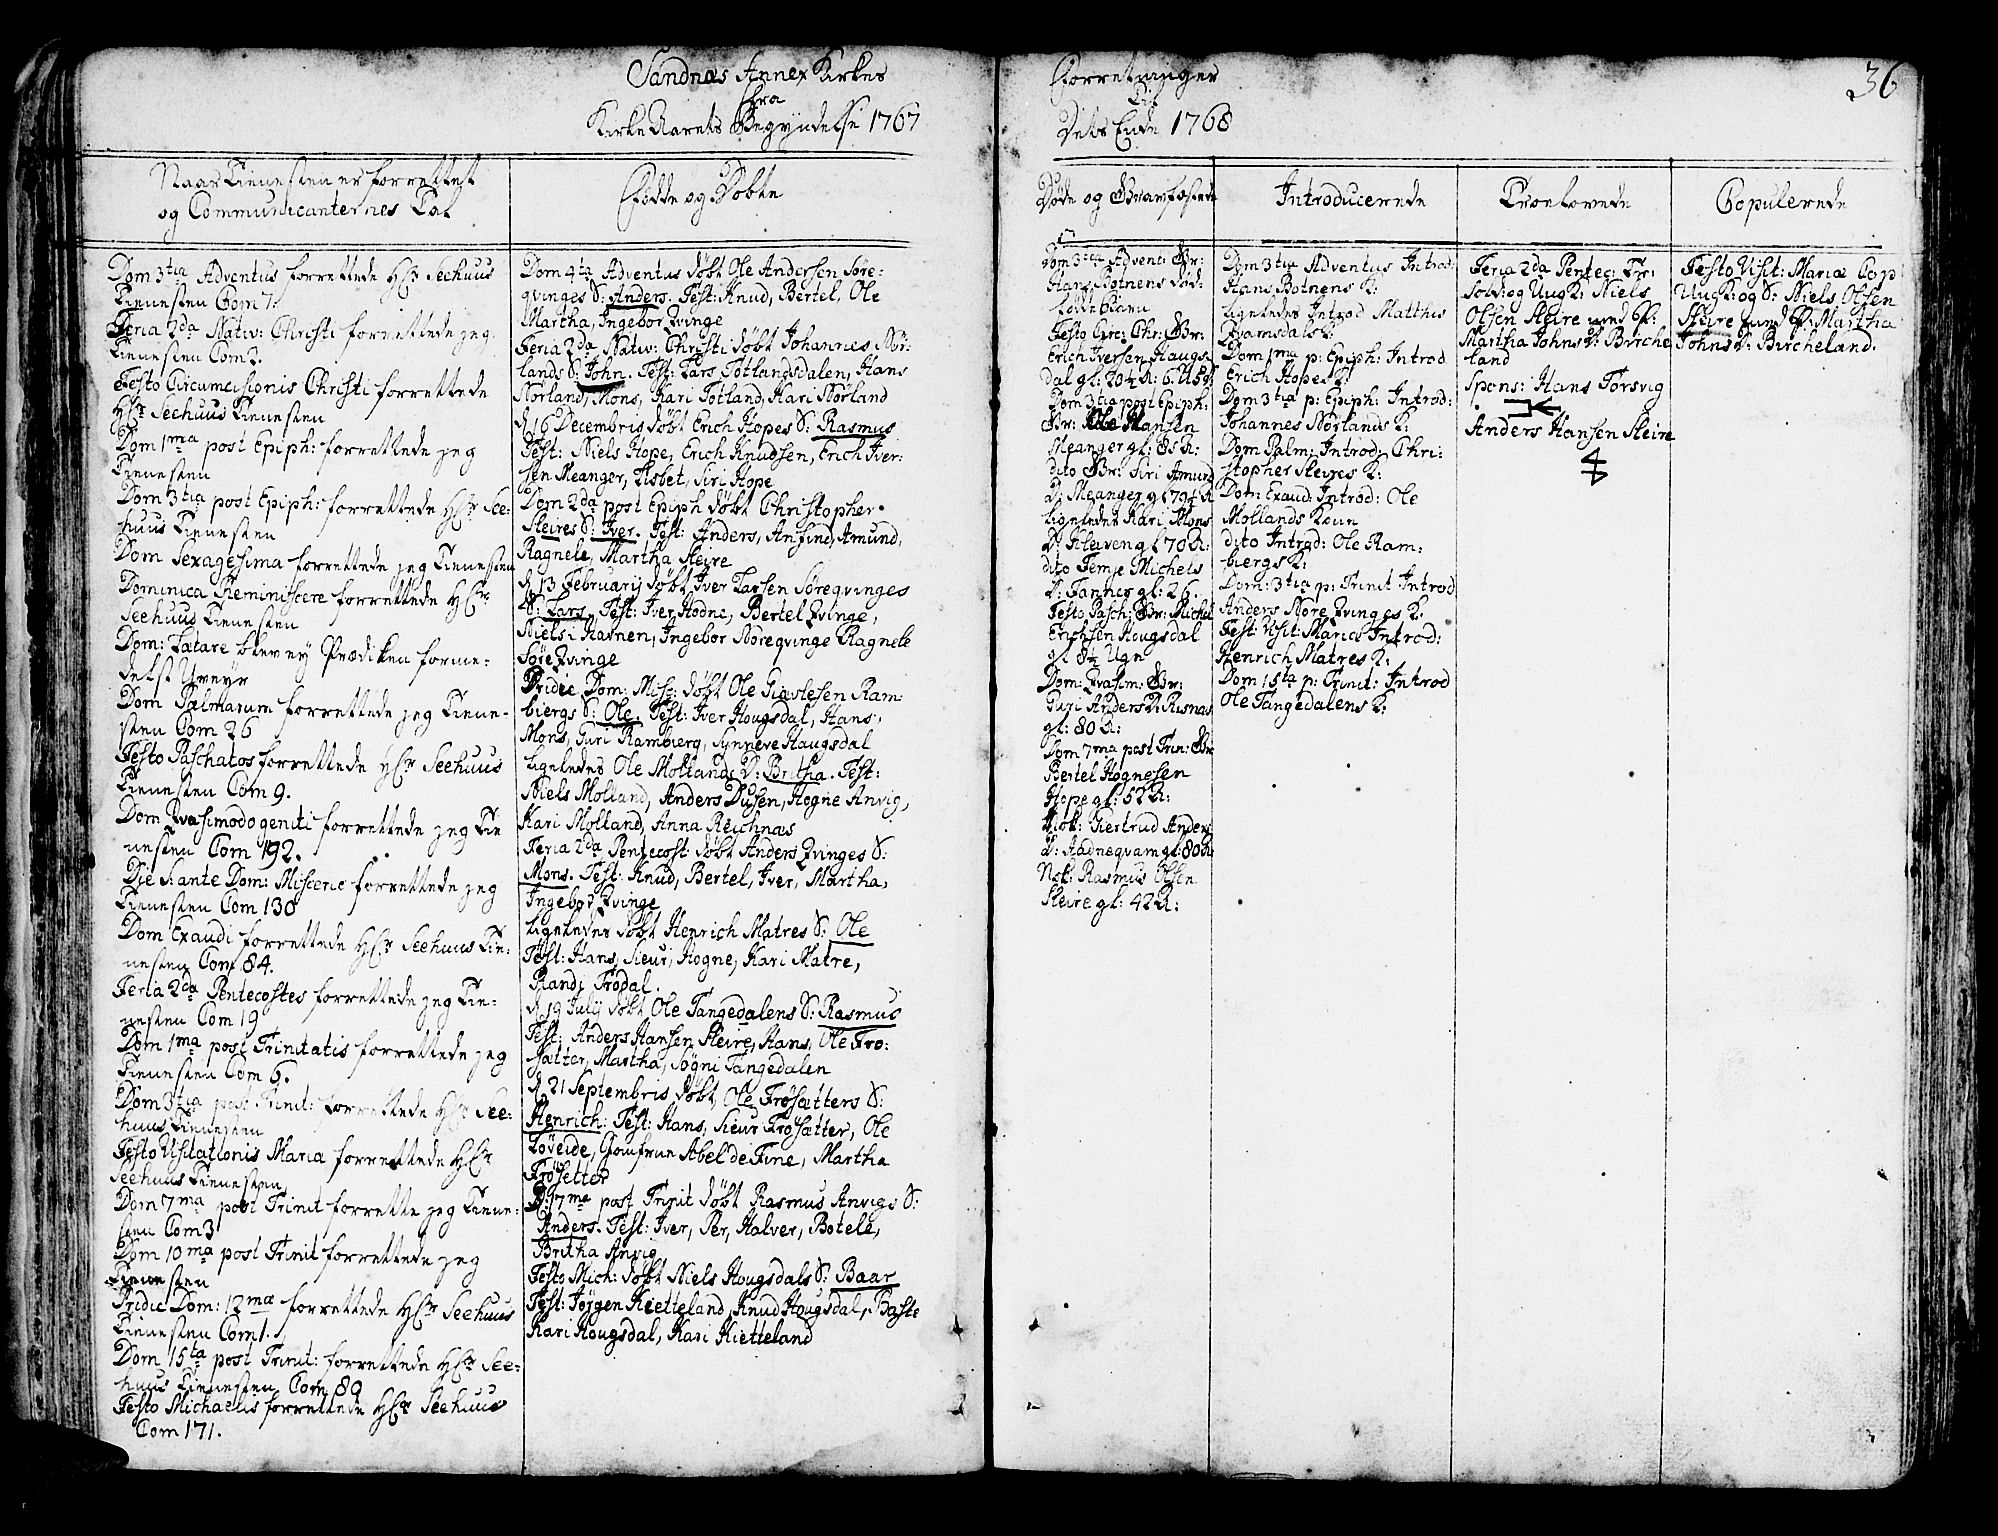 Sandnæs Annex Kirkes
fra
Kirke Aarets Begyndelse 1767
Naar Tienesten er forrettet
og Communicanternes Tal
Dom 3tia Adventus forrettede Hr Seehuus
Tienesten Com 7.
Feria 2da Nativ: Christi forrettede jeg
Tienesten Com 2.
Festo Circumcisionis Christi forrettede
Hr Seehuus Tienesten
Dom 1ma post Epiph: forrettede jeg
Tienesten
Dom 3tia post Epiph: forrettede Hr See-
huus Tienesten
Dom Sexagesima forrettede jeg Tienesten
Dominica Reminiscere forrettede Hr
Seehuus Tienesten
Dom: Lætare blev ej Prædiken forme-
delst Uveyr
Dom Palmarum forrettede jeg Tiene-
sten Com 26
Festo Paschatos forrettede Hr Seehuus
Tienesten Com 9.
Dom Qvasimodogeniti forrettede jeg Tie
nesten Com 192.
Die S: ante Dom: Misceric forrettede jeg
Tienesten Com 130
Dom Exaudi forrettede Hr Seehuus Tie-
nesten Com 84.
Feria 2da Pentecostes forrettede jeg Tie-
nesten Com 19
Dom 1ma post Trinitatis forrettede jeg
Tienesten Com 6.
Dom 3tia post Trinit: forrettede Hr See-
huus Tienesten
Festo Visitationis Maria forrettede Hr
Seehuus Tienesten
Dom 7ma post Trinit forrette jeg Tiene-
sten Com 3
Dom 10ma post Trinit forrettede jeg
Tienesten
Pridie Dom: 12mæ forrettede Hr Seehuus
Tienesten Com 1.
Dom 15ta post Trinit: forrettede Hr See-
huus Tienesten Com 89
Festo Michaelis forrettede Hr Seehuus
Com 171.
Fødte og Døbte
Dom 4ta Adventus døbt Ole Andersen Søre-
qvinges S: Anders. Test: Knud, Bertel, Ole
Martha, Ingebor Qvinge
Feria 2da Nativ: Christi døbt Johannes Nør-
lands S: John. Test: Lars Totlangsdalen, Hans
Norland, Mons, Kari Totland, Kari Nørland
d. 16 Decembris døbt Erich Hopes S: Rasmus
Test: Niels Hope, Erich Knudsen, Erich Iver-
sen Meanger, Lisbet, Siri Hope
Dom 2da post Epiph døbt Christopher
Sleires S: Iver. Test: Anders, Anfind, Amund,
Ragnele, Martha Sleire
d. 13 Februarij døbt Iver Larsen Søreqvinges
S: Lars. Test: Iver Hodne, Bertel Qvinge,
Niels i Havnen, Ingebor Nøreqvinge Ragnele
Søre Qvinge
Pridie Dom: Misc: døbt Ole Giævlesen Ram-
biergs S: Ole. Test: Iver Hougsdal, Hans,
Mons, Guri Ramberg, Synneve Haugsdal
Ligeledes Ole Mollands D: Britha. Test:
Niels Molland, Anders Dusen, Hogne Anvig,
Kari Molland, Anna Reichnæs
Feria 2da Pentecost: døbt Anders Qvinges S:
Mons. Test: Knud, Bertel, Iver, Martha,
Ingebor Qvinge
Ligeledes døbt Henrich Matres S: Ole
Test: Hans, Sieur, Hogne, Kari Matre,
Randi Frodal.
d. 19 July døbt Ole Tangedalens S: Rasmus
Test: Anders Hansen Sleire, Hans, Ole Frø-
sætter, Martha, Søgni Tangedalen
d. 21 Septembris døbt Ole Frøsætters S:
Henrich: Test: Hans, Sieur Frøsætter, Ole
Løveide, Jomfrue Abel de Fine, Martha
Frøsetter
D: 17ma post Trinit døbt Rasmus Anvigs S:
Anders. Test: Iver, Per, Halver, Botele,
Britha Anvig
Festo Mich: døbt Niels Hougsdals S: Baar
Test: Jørgen Kietteland, Knud Hougsdal, Baste
Kari Hougsdal, Kari Kietteland
Forretninger
Til
Dets Ende 1768
36
Døde og Gravfæstede
Dom 3tia Advent: Gr:
Hans Botnens død-
fødte Barn
Festo Circ: Chr: Gr:
Erich Iversen Haugs-
dal gl: 20½ A: 6 U 5 D
Dom 3tia post Epiph:
Gr: Ole Hansen
Meanger gl: 85 A:
dito Gr: Siri Amund
D: Meanger gl 79½ A
Ligeledes Kari Mons
D: Kleiven gl 70 A:
dito Temje Michels
D: Fanner gl: 26.
Festo Pasch: Gr: Michel
Erichsen Hougsdal
gl 8½ Ugn
Dom: Qvasim: Gr:
Guri Anders D: Risnæs
gl: 80 A:
Dom 7ma post Trin: Gr
Bertel Hognesen
Hope gl: 52 A:
Nok: Giertrud Anders
D: Aadneqvam gl: 80 A:
Nok: Rasmus Olsen
Sleire gl: 42 A:
Introducerede
Dom 3tia Adventus Introd:
Hans Botnens K:
Ligeledes Introd Matthis
Qvamsdals K:
Dom 1ma p: Epiph: Introd
Erich Hopes K:
Dom 3tia p: Epiph: Introd:
Johannes Norlands K:
Dom Palm: Introd: Chri-
stopher Sleires K:
Dom: Exaud: Introd: Ole
Mollands Kone
dito Introd: Ole Ram-
biergs K:
Dom: 3tia p: Trinit Introd
Anders Nøre Qvinges K:
Fest: Visit: Mariæ Introd:
Henrich Matres K:
Dom 15ta p: Trinit: Introd
Ole Tangedalens K:
Troelovede
Feria 2da Pentec: Tr:
Sold: og Ung K: Niels
Olsen Sleire med P:
Martha Johns D: Birche
land
Spons: Hans Torsvig
Anders Hansen Sleire
Copulerede
Festo Visit: Mariæ Cop
Ung K: og S: Niels Olsen
Sleire med P: Martha
Johns D: Bircheland.